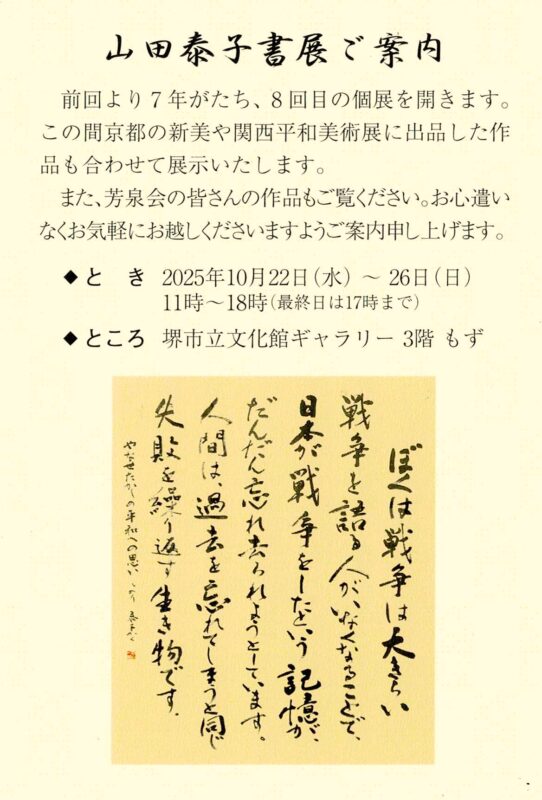 山田泰子書展ご案内
前回より7年がたち、8回目の個展を開きます。
この間京都の新美や関西平和美術展に出品した作
品も合わせて展示いたします。
また、芳泉会の皆さんの作品もご覧ください。お心遣い
なくお気軽にお越しくださいますようご案内申し上げます。
◆とき 2025年10月22日(水) ~ 26日(日)
11時~18時(最終日は17時まで)
◆ところ 堺市立文化館ギャラリー 3階 もず
ぼくは戦争は大きらい
戦争を語る人がいなくなることで、
日本が戦争をしたという記憶が、
だんだん忘れ去られようとしています。
人間は、過去を忘れてしまうと同じ
失敗を繰り返す生き物です。
やなせたかしの平和への思いより